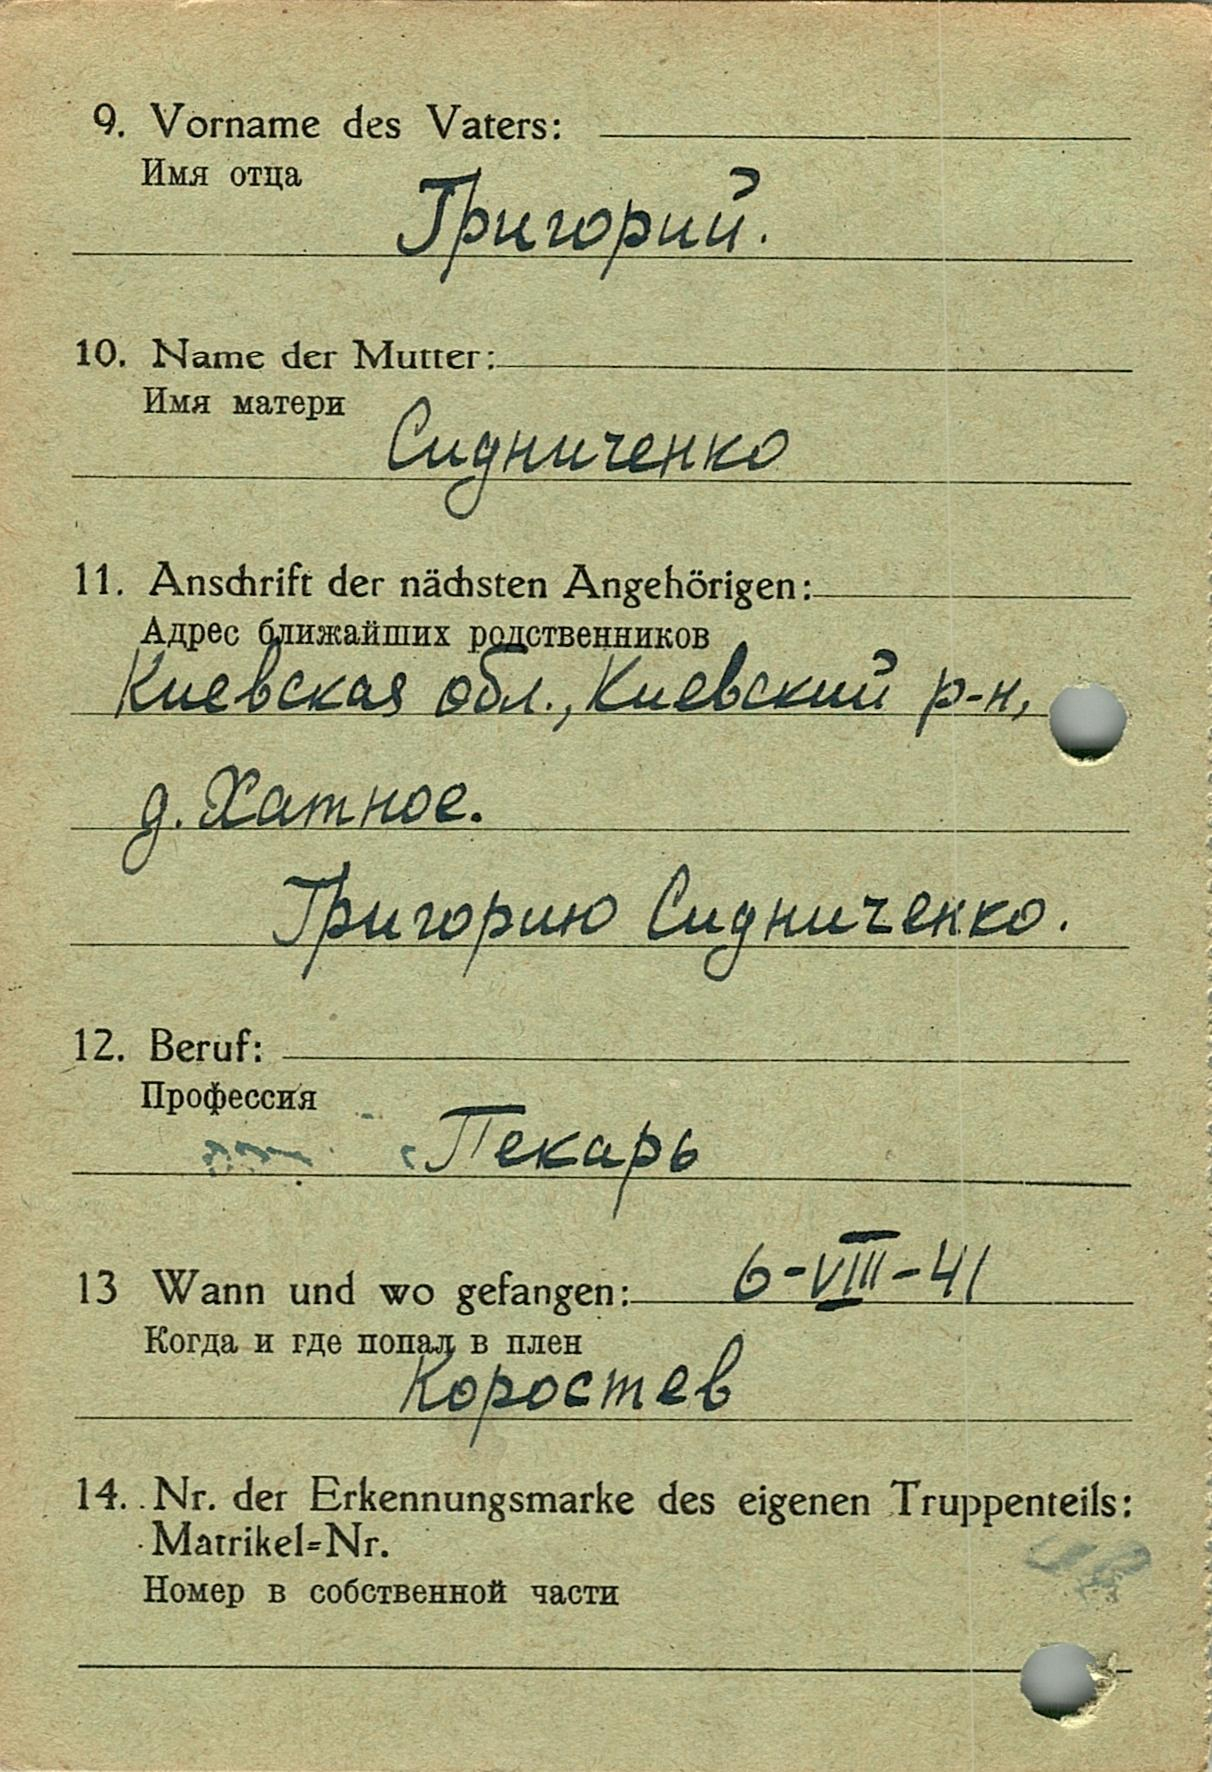 9. Vorname des Vaters:
Имя отца
Григорий.
10. Name der Mutter:
Имя матери
Сидниченко
11. Anschrift der nächsten Angehörigen:
Адрес ближайших родственников
Киевская обл., Киевский р-н,
д. Хатное.
Григорию Сидниченко.
12. Beruf:
Профессия
Пекарь
13 Wann und wo gefangen: 6-VIII-41
Когда и где попал в плен
Коростев
14. Nr. der Erkennungsmarke des eigenen Truppenteils:
Matrikel-Nr.
Номер в собственной части